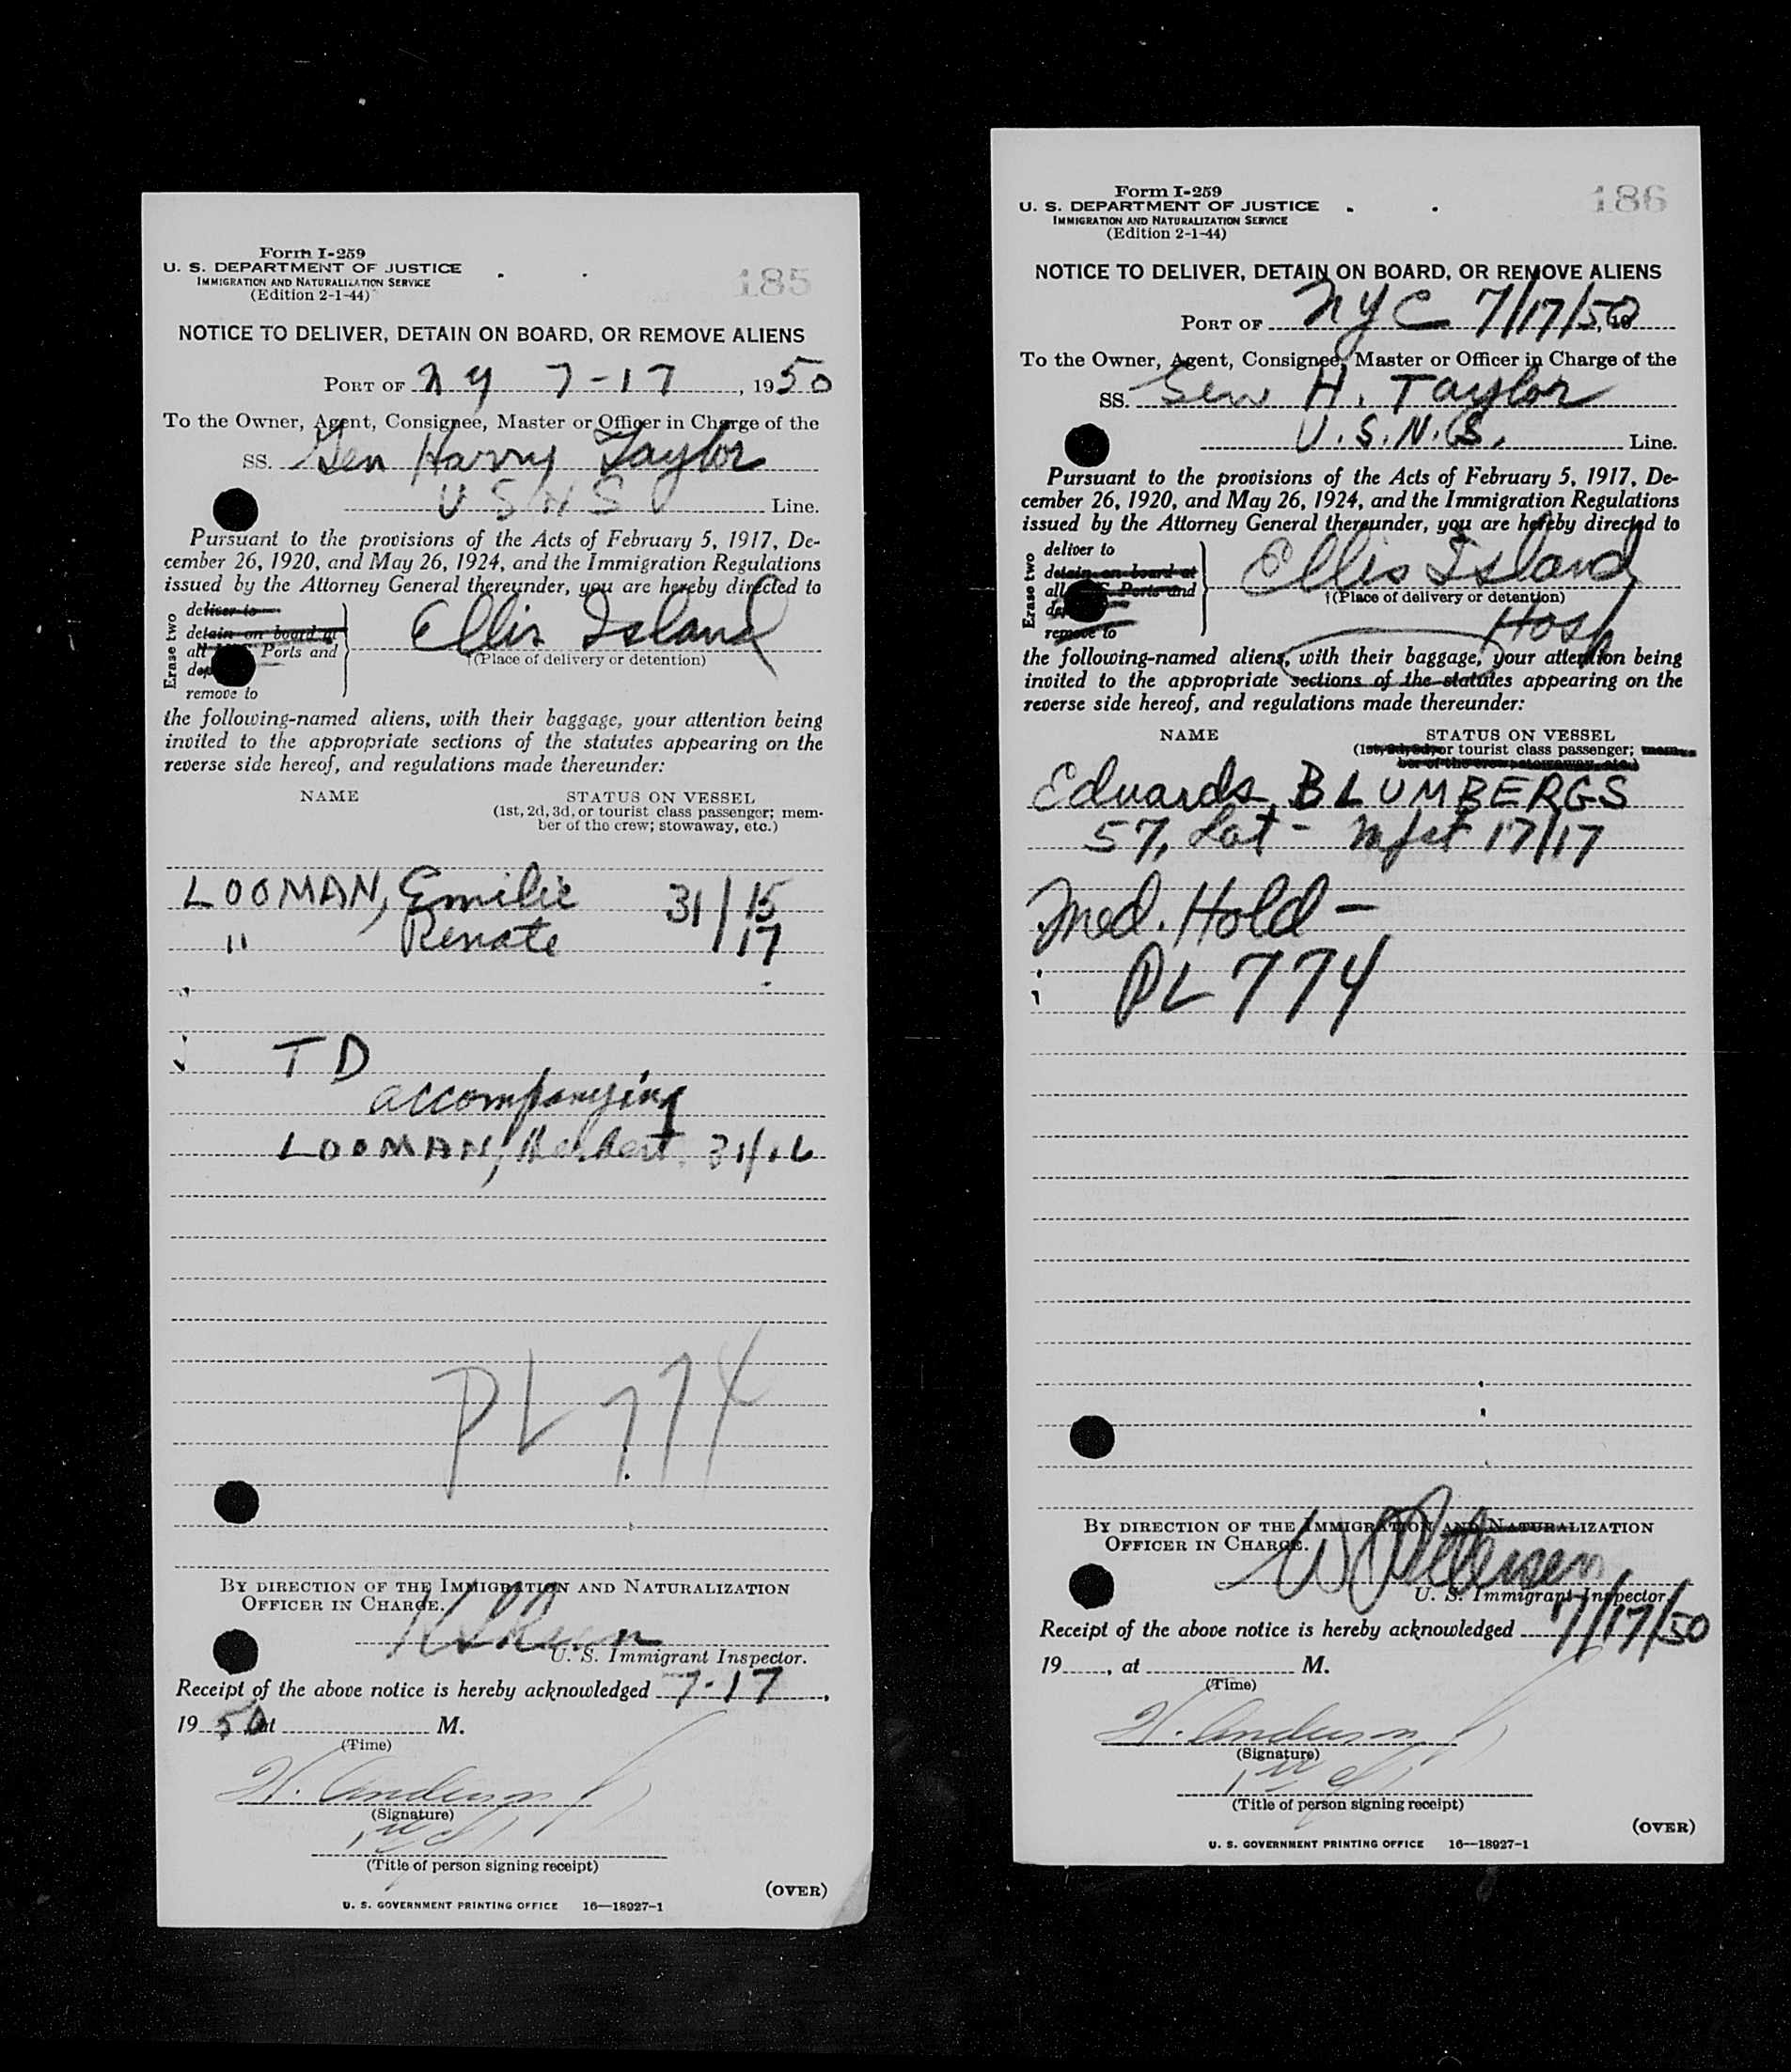 Form I-259
U. S. DEPARTMENT OF JUSTICE
IMMIGRATION AND NATURALIZATION SERVICE
(Edition 2-1-44)
185
NOTICE TO DELIVER, DETAIN ON BOARD, OR REMOVE ALIENS
PORT OF NY 7-17, 1950
To the Owner, Agent, Consignee, Master or Officer in Charge of the
SS. Gen Harry Taylor
USNS Line.
Pursuant to the provisions of the Acts of February 5, 1917, De-
cember 26, 1920, and May 26, 1924, and the Immigration Regulations
issued by the Attorney General thereunder, you are hereby directed to
Erase two
deliver to
detain on board at
all Ports and
remove to
Ellis Island
†(Place of delivery or detention)
the following-named aliens, with their baggage, your attention being
invited to the appropriate sections of the statutes appearing on the
reverse side hereof, and regulations made thereunder:
NAME STATUS ON VESSEL
(1st, 2d, 3d, or tourist class passenger; mem-
ber of the crew; stowaway, etc.)
LOOMAN, Emilie 31/15
" Renate 17
TD
accompanying
LOOMAN, Herbert 31/16
PL 774
BY DIRECTION OF THE IMMIGRATION AND NATURALIZATION
OFFICER IN CHARGE.
U. S. Immigrant Inspector.
Receipt of the above notice is hereby acknowledged 7-17,
1950 at M.
(Time)
H. Anderson
(Signature)
(Title of person signing receipt)
(OVER)
U. S. GOVERNMENT PRINTING OFFICE 16—18927-1
Form I-259
U. S. DEPARTMENT OF JUSTICE
IMMIGRATION AND NATURALIZATION SERVICE
(Edition 2-1-44)
186
NOTICE TO DELIVER, DETAIN ON BOARD, OR REMOVE ALIENS
PORT OF NYC 7/17/50
To the Owner, Agent, Consignee, Master or Officer in Charge of the
SS. Gen H. Taylor
U.S.N.S. Line.
Pursuant to the provisions of the Acts of February 5, 1917, De-
cember 26, 1920, and May 26, 1924, and the Immigration Regulations
issued by the Attorney General thereunder, you are hereby directed to
Erase two
deliver to
detain on board at
all Ports and
remove to
Ellis Island
†(Place of delivery or detention)
Hosp
the following-named aliens, with their baggage, your attention being
invited to the appropriate sections of the statutes appearing on the
reverse side hereof, and regulations made thereunder:
NAME STATUS ON VESSEL
(1st, 2d, 3d, or tourist class passenger; mem-
ber of the crew; stowaway, etc.)
Eduards BLUMBERGS
57, Lat - Mfst 17/17
Med. Hold -
PL 774
BY DIRECTION OF THE IMMIGRATION AND NATURALIZATION
OFFICER IN CHARGE.
U. S. Immigrant Inspector.
Receipt of the above notice is hereby acknowledged 7/17/50
19, at M.
(Time)
H. Anderson
(Signature)
(Title of person signing receipt)
(OVER)
U. S. GOVERNMENT PRINTING OFFICE 16—18927-1